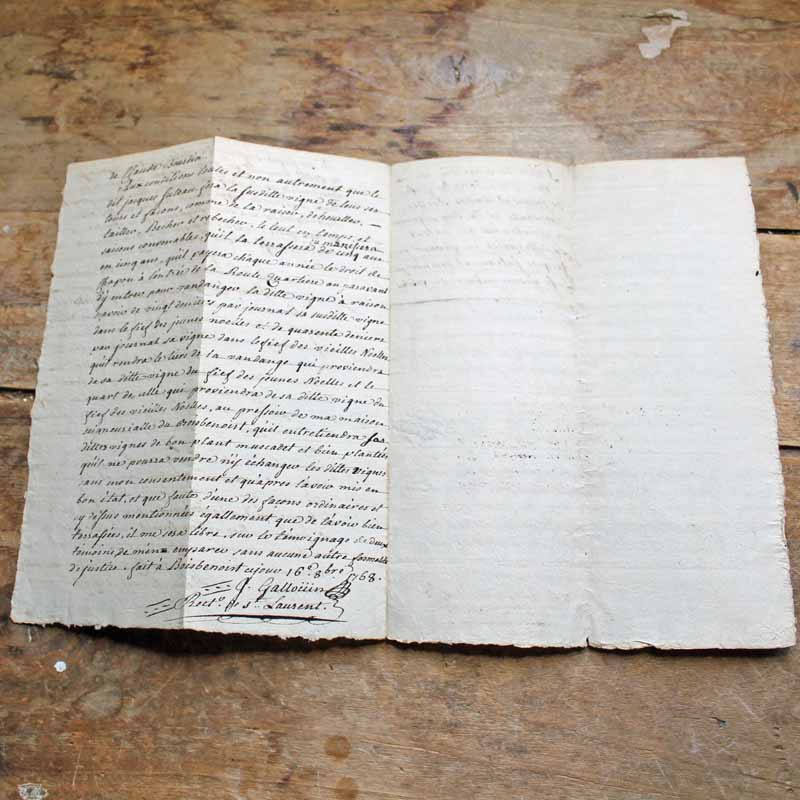 de Claude Bourdin
Aux conditions telles et non autrement que le
dit jaques futeau fera la susditte vigne de tous ses
tours et façons, comme de la raison, dehouller, —
tailler, Becher et rebecher, le tout en temps et
saisons convenables, qu'il la terrassera de cinq ans
ou maneffera
en cinq ans, qu'il payera chaque année le droit de
chapon à l'entrée de la Route Quartiere au paravant
d'y entrer pour vandanger sa ditte vigne à raison
savoir de vingt deniers par journal sa susditte vigne
dans le fief des jeunes noelles et de quarente deniers
par journal sa vigne dans le fief des vieilles Noelles
qu'il rendra le tiers de la vandange qui proviendra
de sa ditte vigne du fief des jeunes Noelles et le
quart de celle qui proviendra de sa ditte vigne du
fief des vieilles Noelles, au pressoir de ma maison
seigneurialle du Boisbenoist, qu'il entretiendra ses
dittes vignes de bon plant muscadet et bien planter
qu'il ne pourra vendre n'y échanger les dittes vignes
sans mon consentement et qu'apres l'avoir mis en
bon état, et que faute d'une des façons ordinaires et
cy dessus mentionnées égallement que de l'avoir bien
terrassées, il me sera libre, sur le témoignage de deux
temoins de m'en emparer sans aucune autre formalité
de justice. fait à Boisbenoist ce jour 16.e 8bre 1768.
J. Galloüin
Rect.r de St. Laurent.